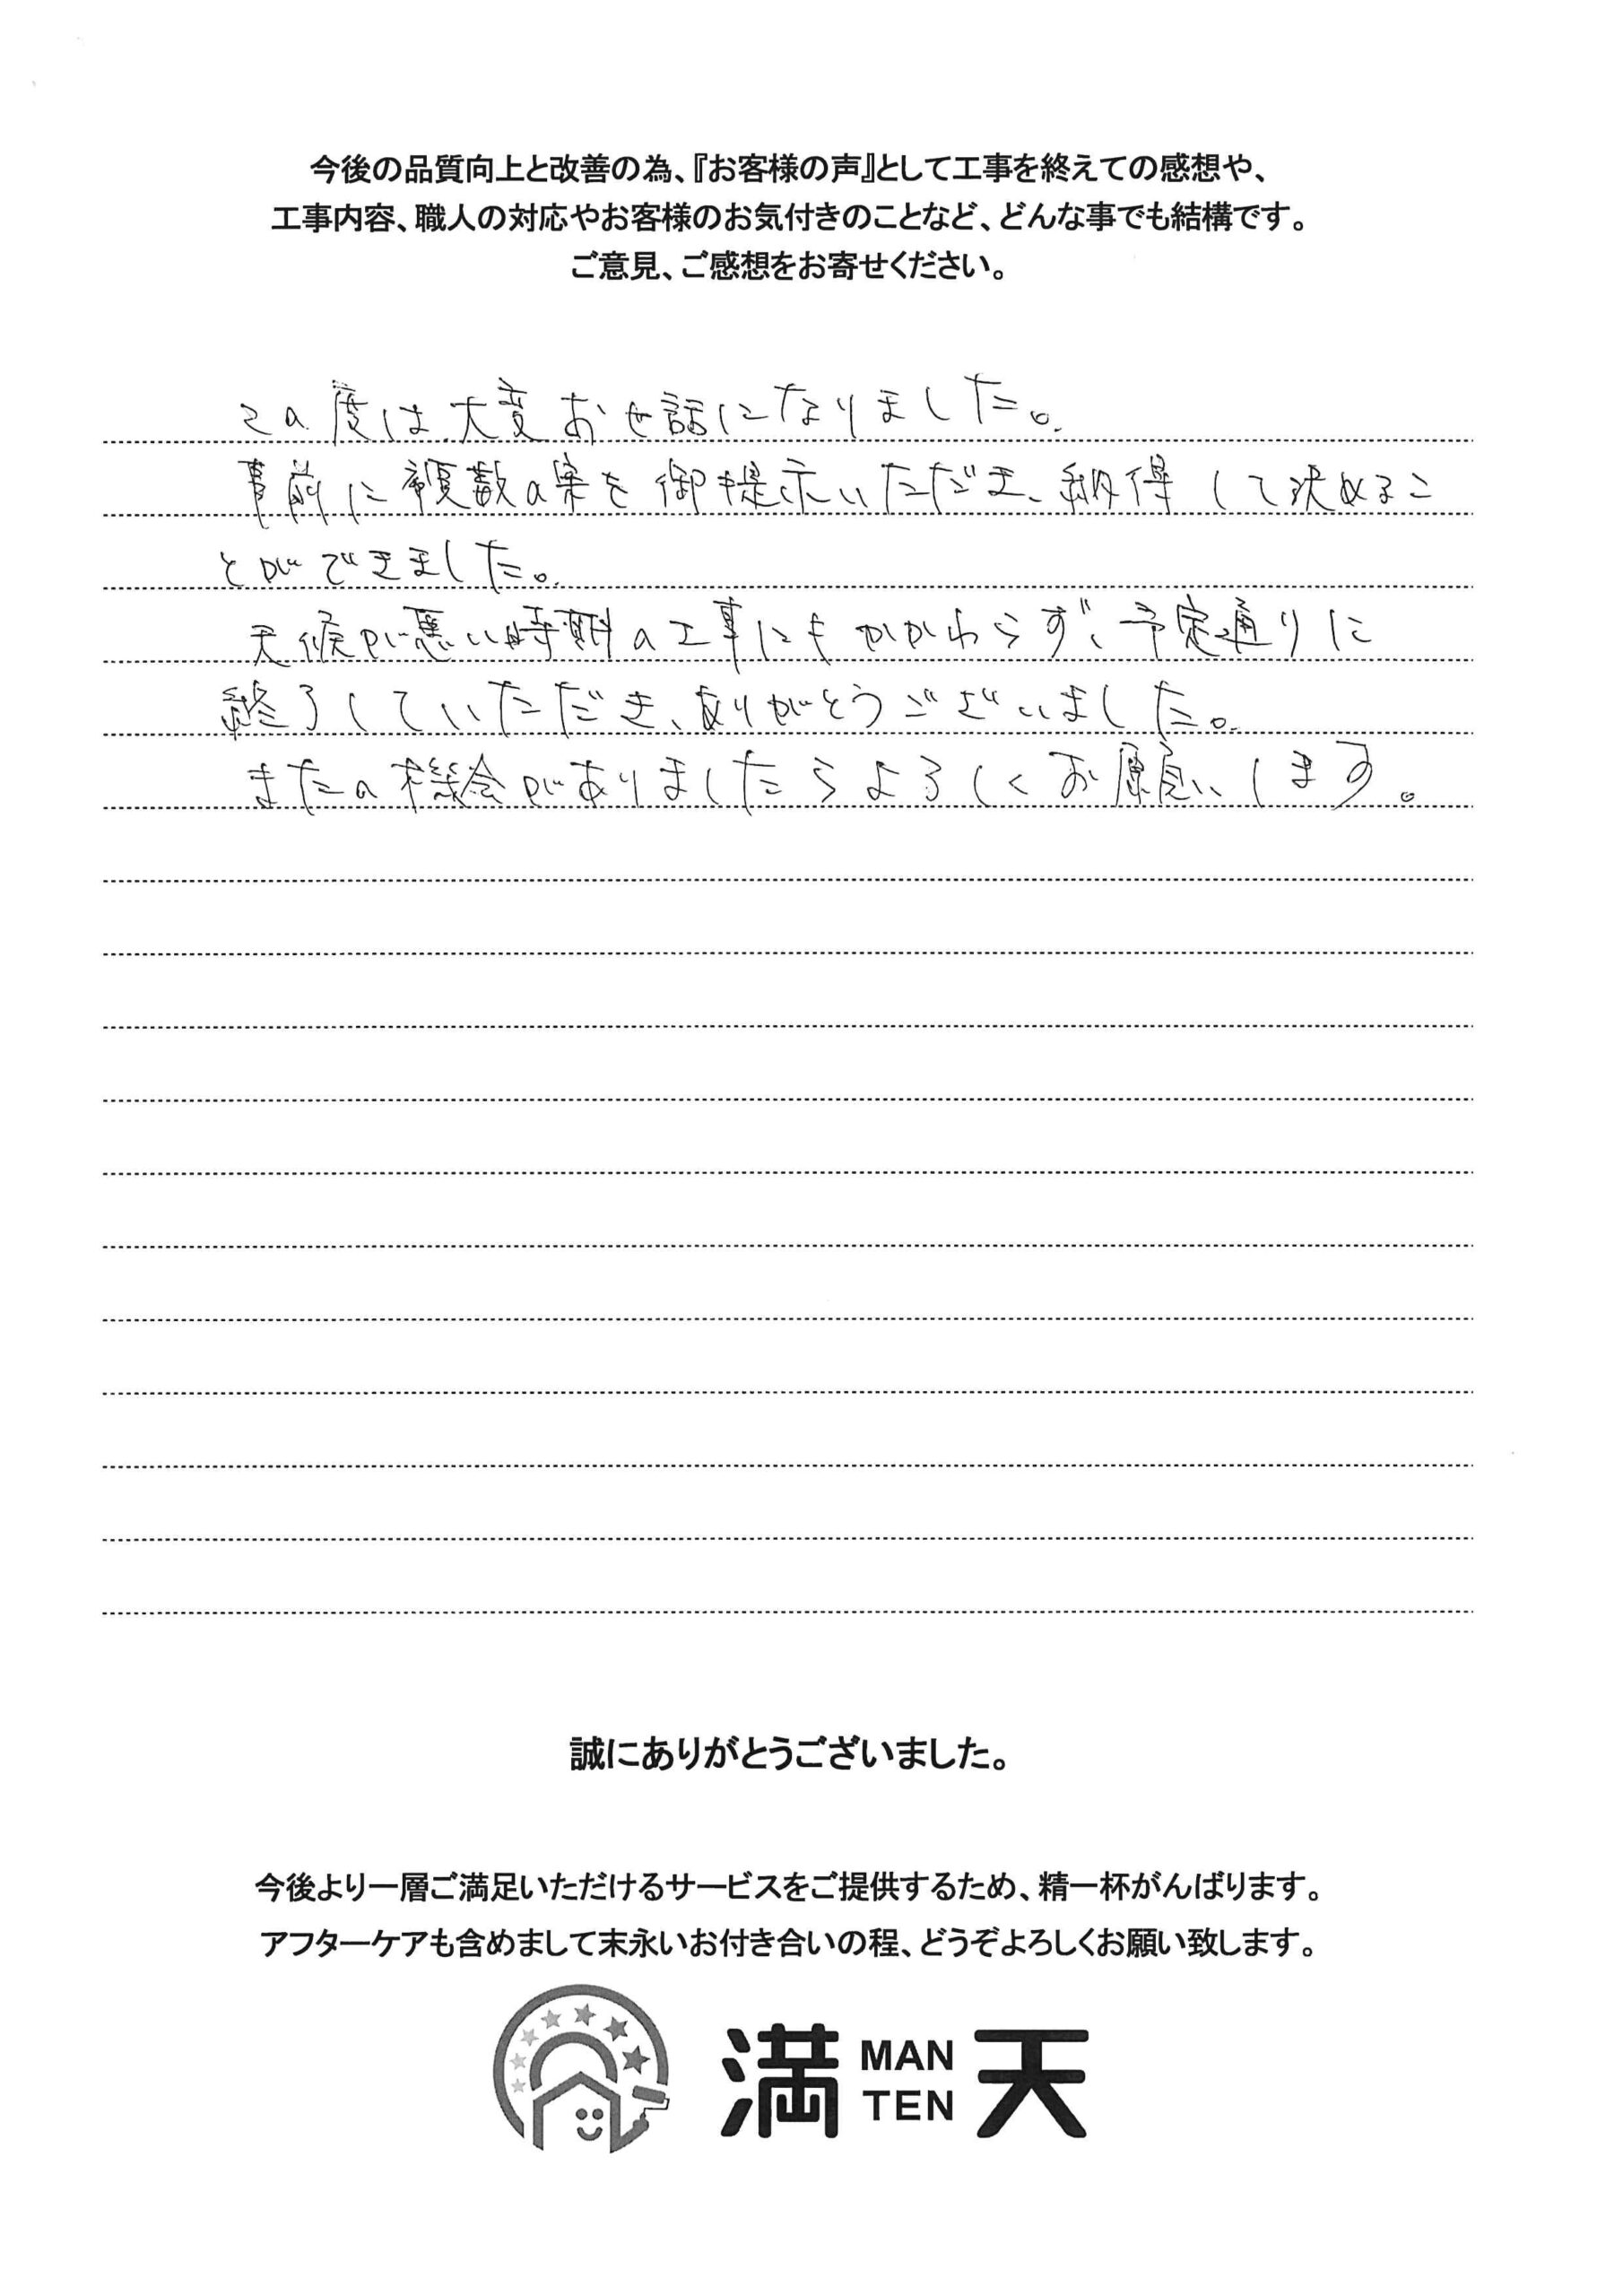 今後の品質向上と改善の為、『お客様の声』として工事を終えての感想や、
工事内容、職人の対応やお客様のお気付きのことなど、どんな事でも結構です。
ご意見、ご感想をお寄せください。
この度は大変お世話になりました。
事前に複数の案を御提示いただき、納得して決めるこ
とができました。
天候が悪い時期の工事にもかかわらず、予定通りに
終了していただき、ありがとうございました。
またの機会がありましたらよろしくお願いします。
誠にありがとうございました。
今後より一層ご満足いただけるサービスをご提供するため、精一杯がんばります。
アフターケアも含めまして末永いお付き合いの程、どうぞよろしくお願い致します。
満 MAN TEN 天